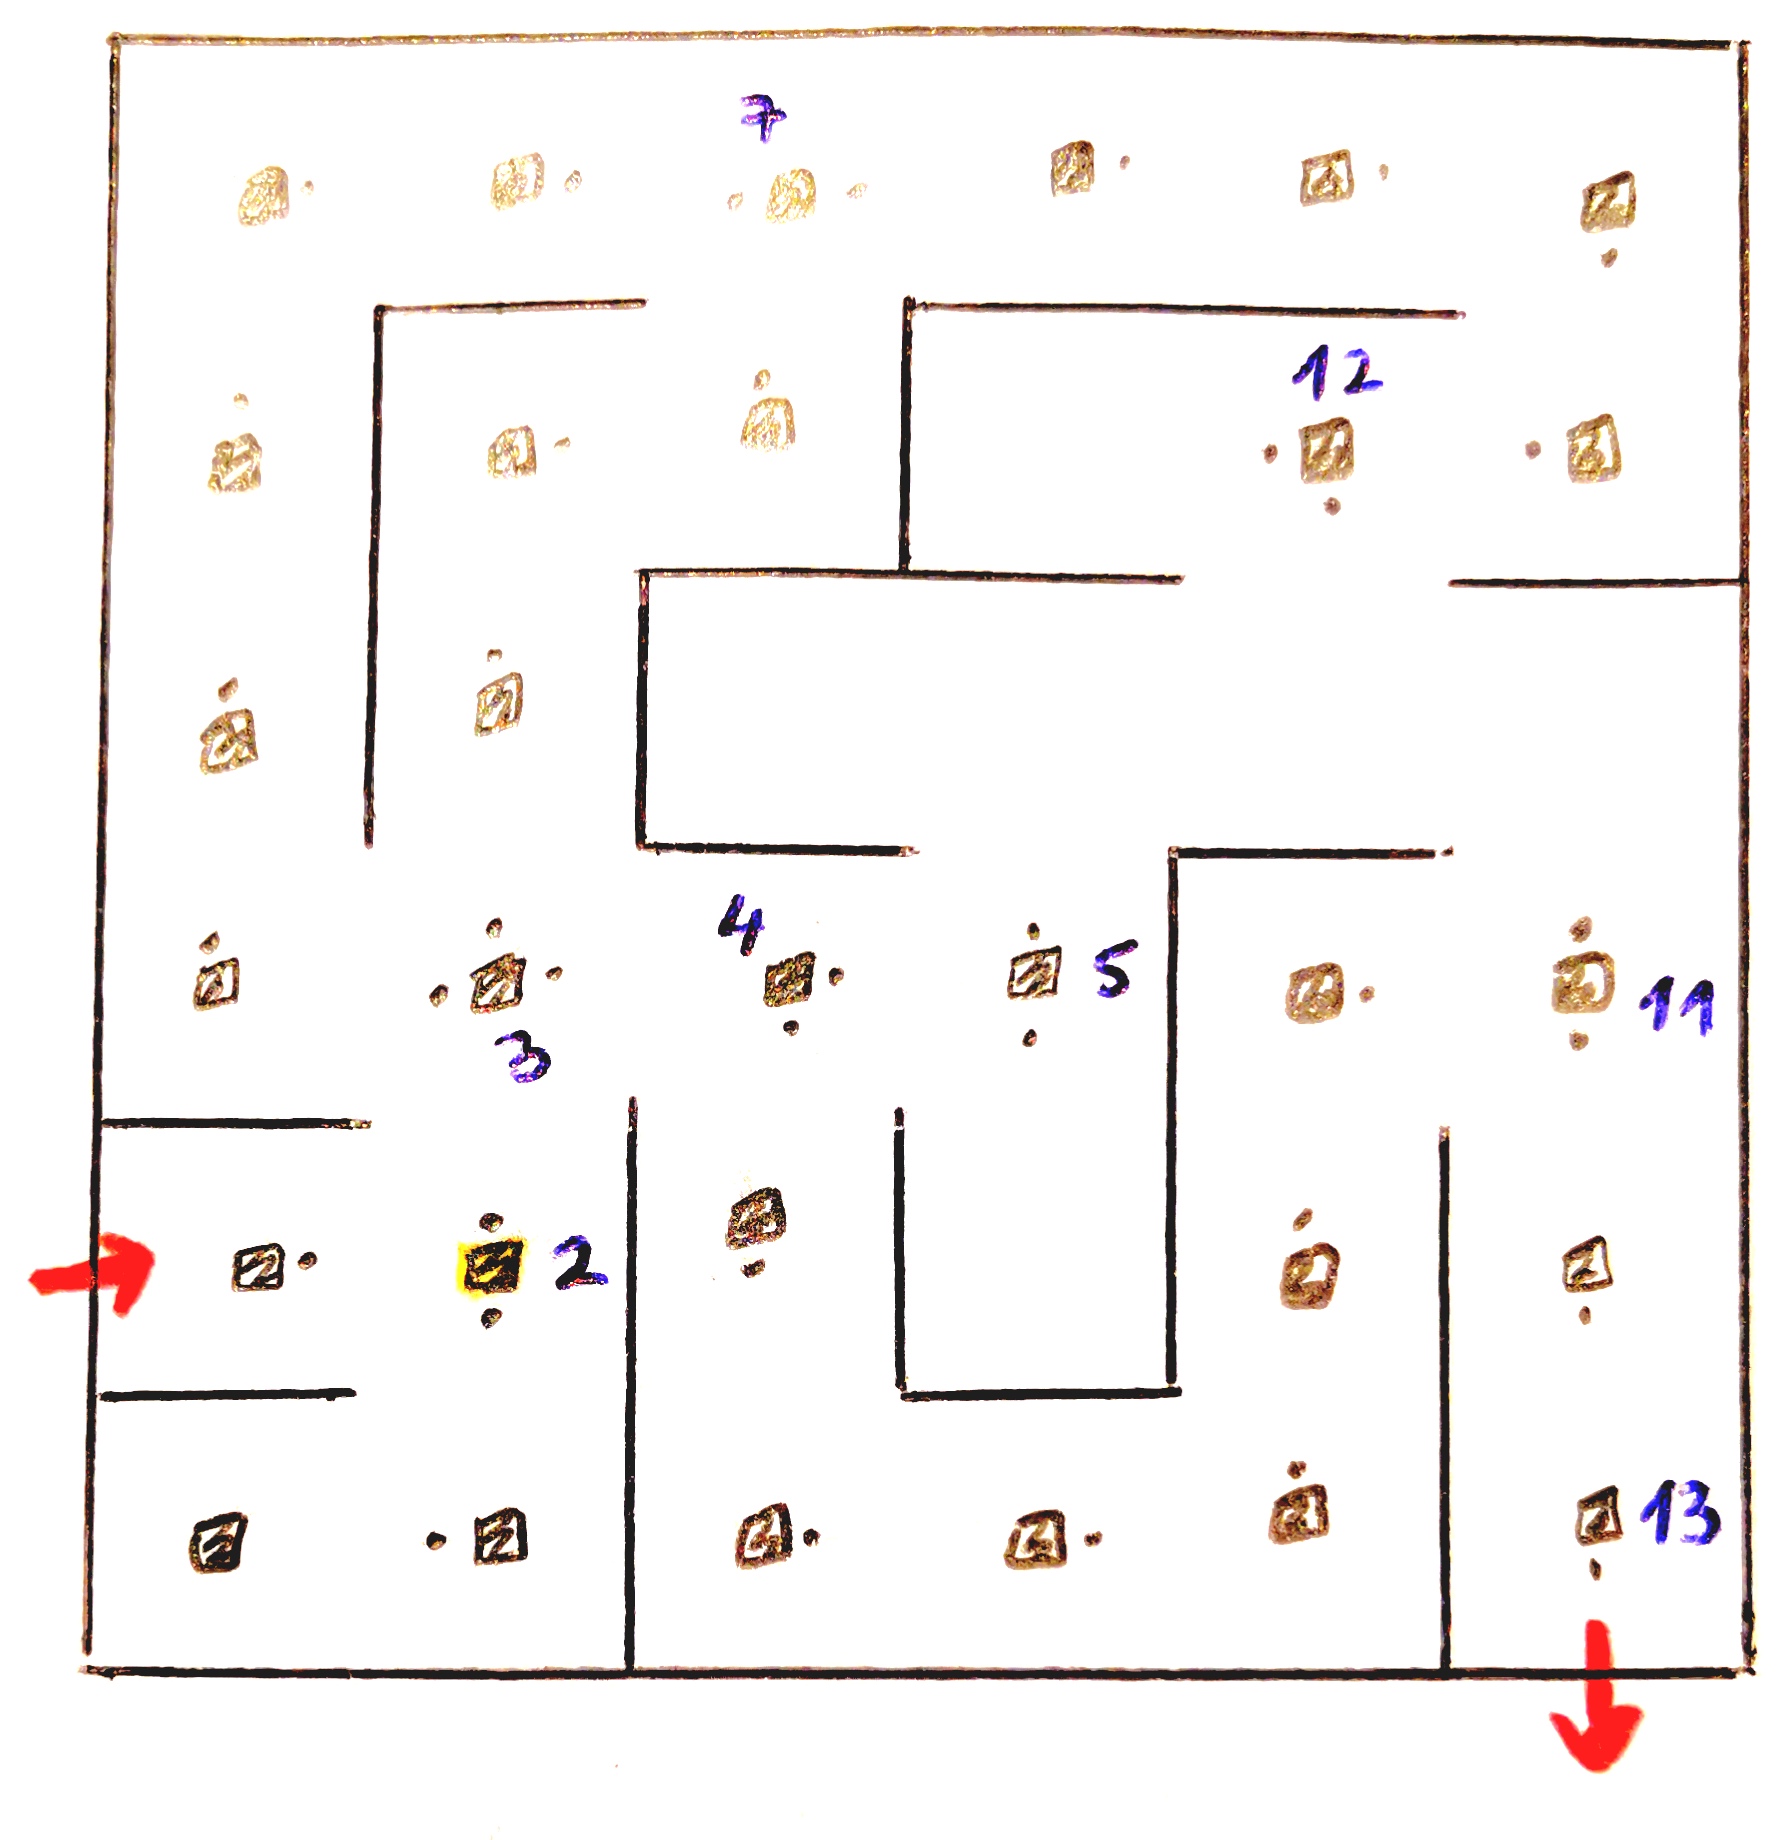 7
12
4
5
3
11
2
13